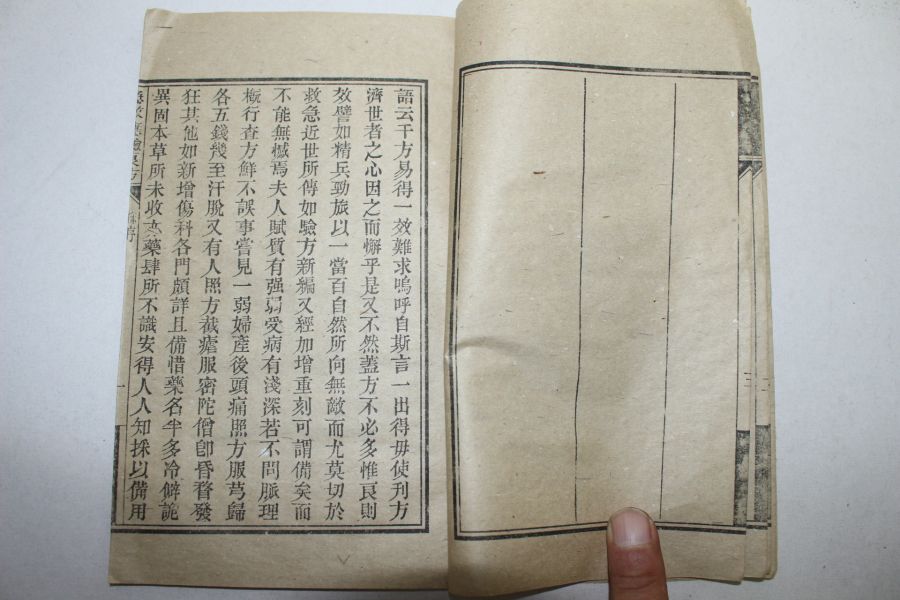 語云千方易得一效難求嗚呼自斯言一出得毋使刊方
濟世者之心因之而懈乎是又不然蓋方不必多惟良則
效譬如精兵勁旅以一當百自然所向無敵而尤莫切於
救急近世所傳如驗方新編又經加增重刻可謂備矣而
不能無憾焉夫人賦質有强弱受病有淺深若不問脈理
槪行查方鮮不誤事嘗見一弱婦產後頭痛照方服芎歸
各五錢幾至汗脫又有人照方截瘧服密陀僧卽昏瞀發
狂其他如新增傷科各門頗詳且備惜藥名半多冷僻詭
異固本草所未收亦藥肆所不識安得人人知採以備用
急救應驗良方
序
一